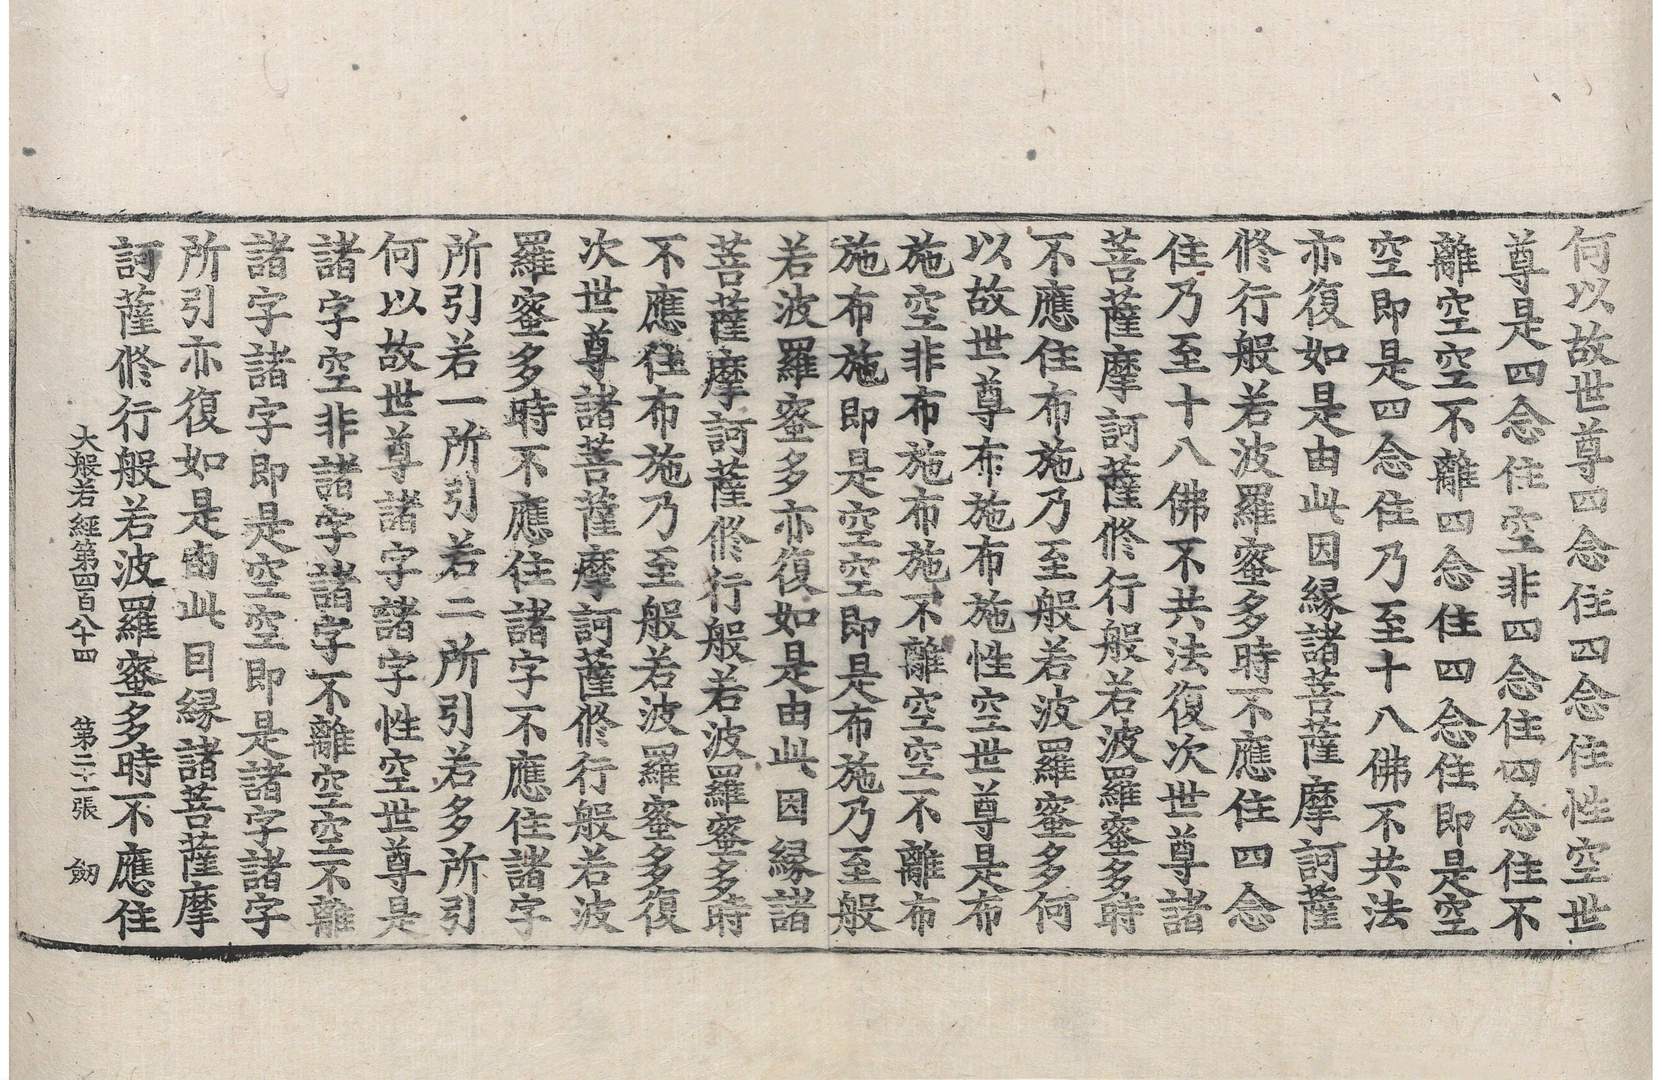 何以故世尊四念住四念住性空世
尊是四念住空非四念住四念住不
離空空不離四念住四念住即是空
空即是四念住乃至十八佛不共法
亦復如是由此因緣諸菩薩摩訶薩
修行般若波羅蜜多時不應住四念
住乃至十八佛不共法復次世尊諸
菩薩摩訶薩修行般若波羅蜜多時
不應住布施乃至般若波羅蜜多何
以故世尊布施布施性空世尊是布
施空非布施布施不離空空不離布
施布施即是空空即是布施乃至般
若波羅蜜多亦復如是由此因緣諸
菩薩摩訶薩修行般若波羅蜜多時
不應住布施乃至般若波羅蜜多復
次世尊諸菩薩摩訶薩修行般若波
羅蜜多時不應住諸字不應住諸字
所引若一所引若二所引若多所引
何以故世尊諸字諸字性空世尊是
諸字空非諸字諸字不離空空不離
諸字諸字即是空空即是諸字諸字
所引亦復如是由此因緣諸菩薩摩
訶薩修行般若波羅蜜多時不應住
大般若經第四百八十四 第二十一張 劒